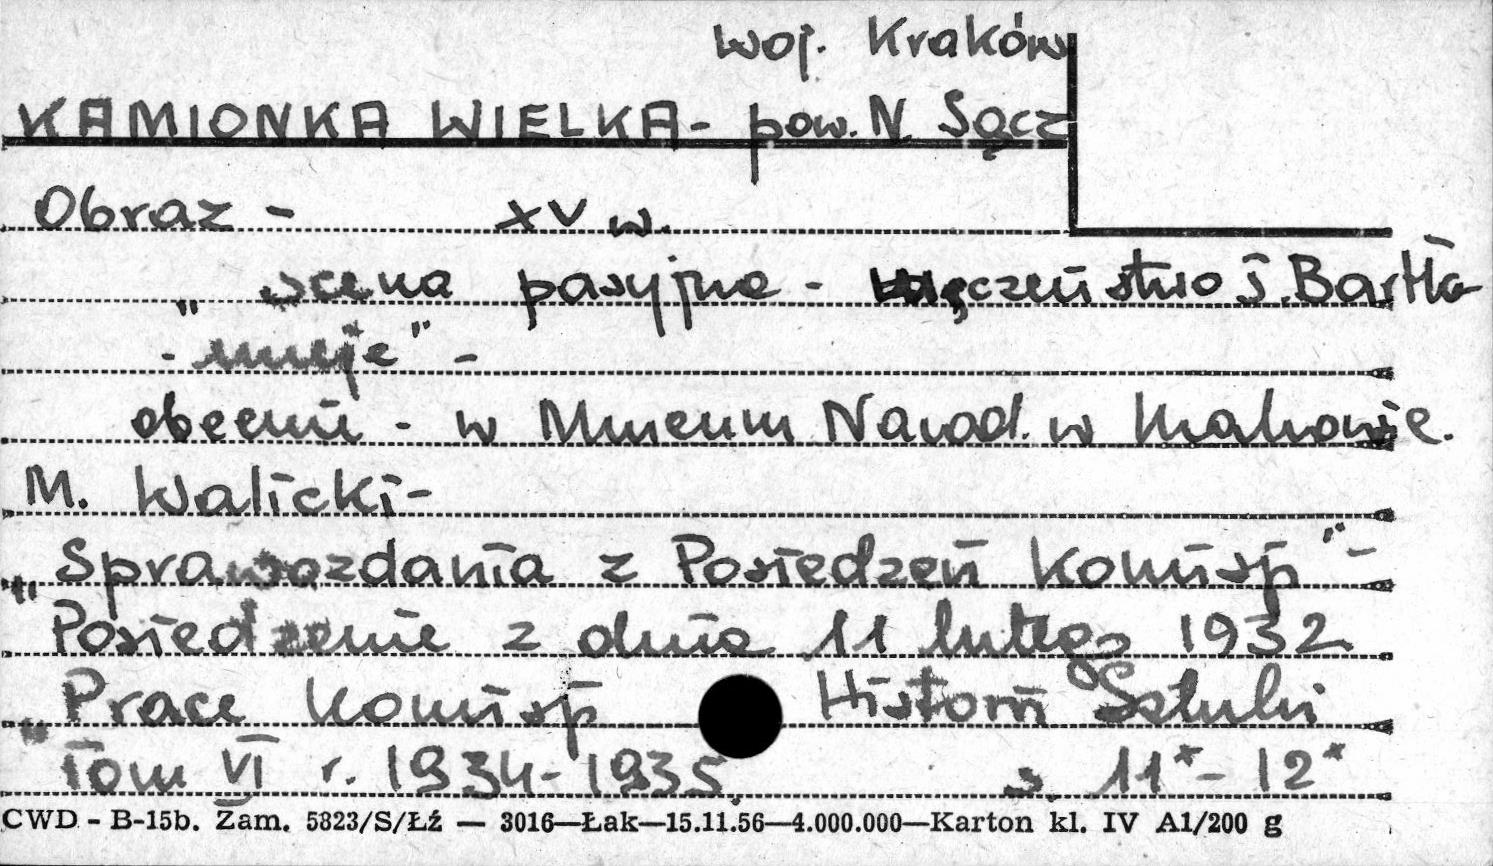 woj. Kraków
KAMIONKA WIELKA - pow. N. Sącz
Obraz - XV w.
"scena pasyjna - Męczeństwo ś. Bartło-
- mieja" -
obecnie - w Muzeum Narod. w Krakowie.
M. Walicki -
"Sprawozdania z Posiedzeń Komisji" -
Posiedzenie z dnia 11 lutego 1932
"Prace Komisji Historii Sztuki
Tom VI r. 1934-1935. s. 11* - 12*
CWD - B-15b. Zam. 5823/S/Łź — 3016—Łak—15.11.56—4.000.000—Karton kl. IV A1/200 g